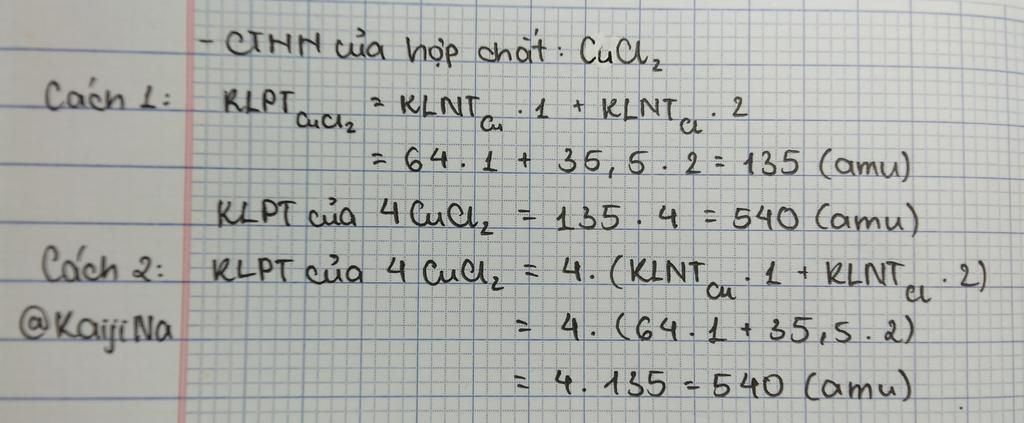 - CTHH của hợp chất: CuCl₂
Cách 1: KLPT CuCl₂ = KLNT Cu . 1 + KLNT Cl . 2
= 64 . 1 + 35,5 . 2 = 135 (amu)
KLPT của 4 CuCl₂ = 135 . 4 = 540 (amu)
Cách 2: KLPT của 4 CuCl₂ = 4. (KLNT Cu . 1 + KLNT Cl . 2)
@KaijiNa = 4. (64 . 1 + 35,5 . 2)
= 4. 135 = 540 (amu)